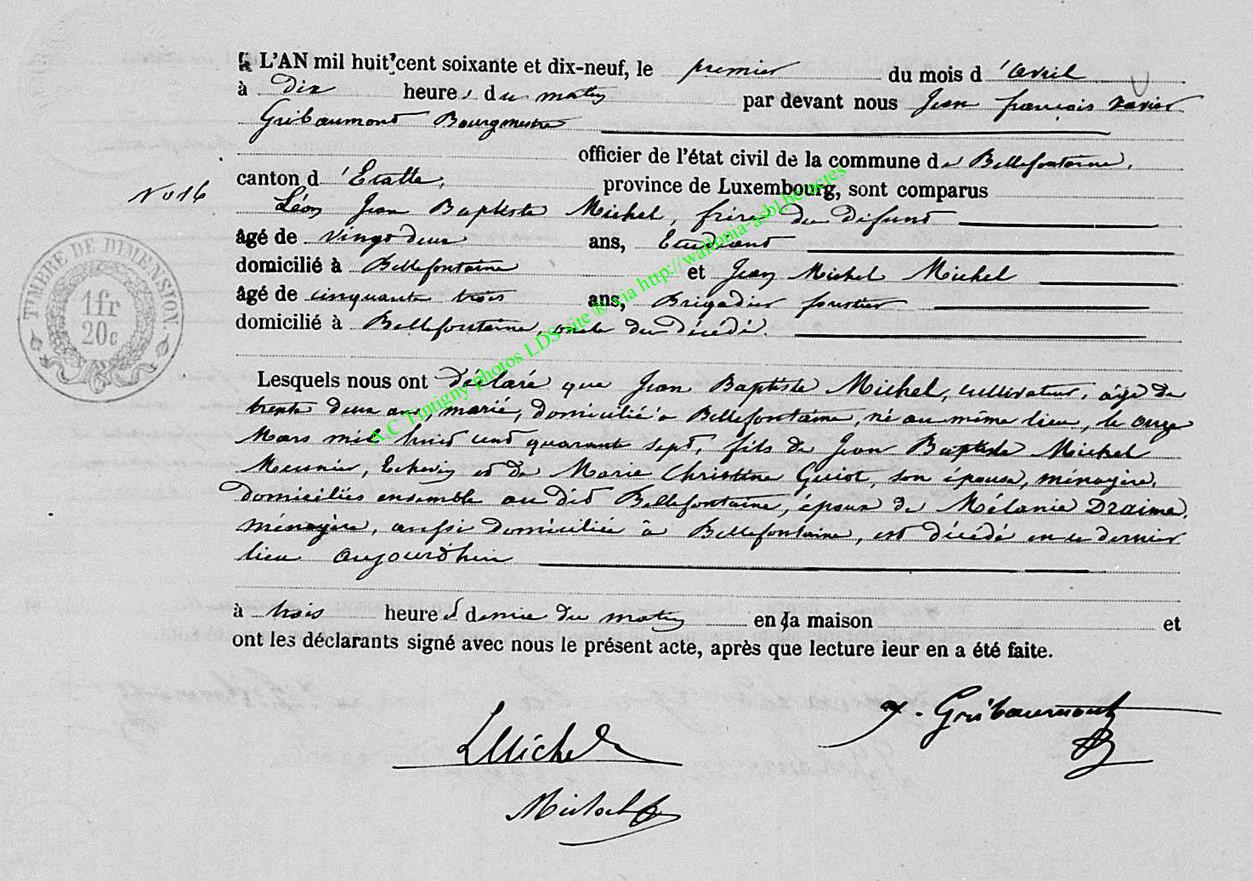 L'AN mil huit cent soixante et dix-neuf, le premier du mois d'avril
à Dix heures du matin par devant nous Jean françois Xavier
Gribaumont Bourgmestre
officier de l'état civil de la commune de Bellefontaine,
canton d'Etalle, province de Luxembourg, sont comparus
No 16
Léon Jean Baptiste Michel, frère du défunt
âgé de vingt deux ans, Etudiant
domicilié à Bellefontaine et Jean Michel Michel
âgé de cinquante trois ans, Brigadier forestier
domicilié à Bellefontaine, oncle du décédé.
TIMBRE DE DIMENSION.
1fr
20c
Lesquels nous ont déclaré que Jean Baptiste Michel, cultivateur, âgé de
trente deux ans, marié, domicilié à Bellefontaine, né au même lieu, le onze
Mars mil huit cent quarante sept, fils de Jean Baptiste Michel
Meunier, Echevin et de Marie Christine Guiot, son épouse, ménagère,
domiciliés ensemble au dit Bellefontaine, époux de Mélanie Draime,
ménagère, aussi domiciliée à Bellefontaine, est décédé en ce dernier
lieu aujourd'hui
à trois heures demie du matin en la maison et
ont les déclarants signé avec nous le présent acte, après que lecture leur en a été faite.
LMichel
Gribaumont
Michel
A.C Tintigny photos LDS site ® via http://wallonia-asbl.be/actes